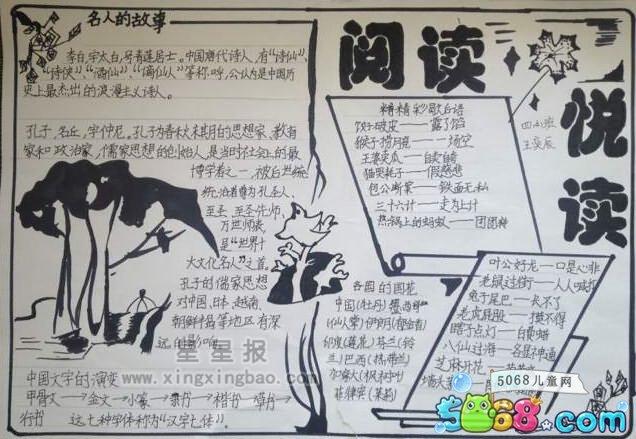 名人的故事
李白,字太白,号青莲居士。中国唐代诗人,有“诗仙”、
“诗侠”、“酒仙”、“谪仙人”等称呼,公认为是中国历
史上最杰出的浪漫主义诗人。
孔子,名丘,字仲尼。孔子为春秋末期的思想家、教育
家和政治家,儒家思想的创始人,是当时社会上的最
博学者之一,被后世统
统治者尊为孔圣人、
至圣、至圣先师、
万世师表,
是“世界十
大文化名人”之首。
孔子的儒家思想
对中国、日本、越南、
朝鲜半岛等地区有深
远的影响。
中国文字的演变
甲骨文→金文→小篆→隶书→楷书→草书→
行书 这七种字体称为“汉字七体”。
阅读
悦
读
精精彩歇后语
饺子破皮——露了馅
猴子捞月亮——一场空
王婆卖瓜——自卖自夸
猫哭耗子——假慈悲
包公断案——铁面无私
三十六计——走为上计
热锅上的蚂蚁——团团转
各国的国花
中国(牡丹)墨西哥
(仙人掌)伊朗(郁金香)
印度(莲花)芬兰(铃
兰)巴西
加拿大(枫树叶)
菲律宾(茉莉)
叶公好龙——口是心非
老鼠过街——人人喊打
兔子尾巴——长不了
老虎屁股——摸不得
瞎子点灯——白费蜡
八仙过海——各显神通
芝麻开花——
墙
星星报
www.xingxingbao.com
5068儿童网
5068.com